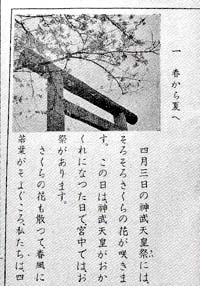 一 春から夏へ
四月三日の神武天皇祭には、
そろそろさくらの花が咲きま
す。この日は、神武天皇がおか
くれになつた日で、宮中ではお
祭があります。
さくらの花も散つて、春風に
若葉がそよぐころ、私たちは、四